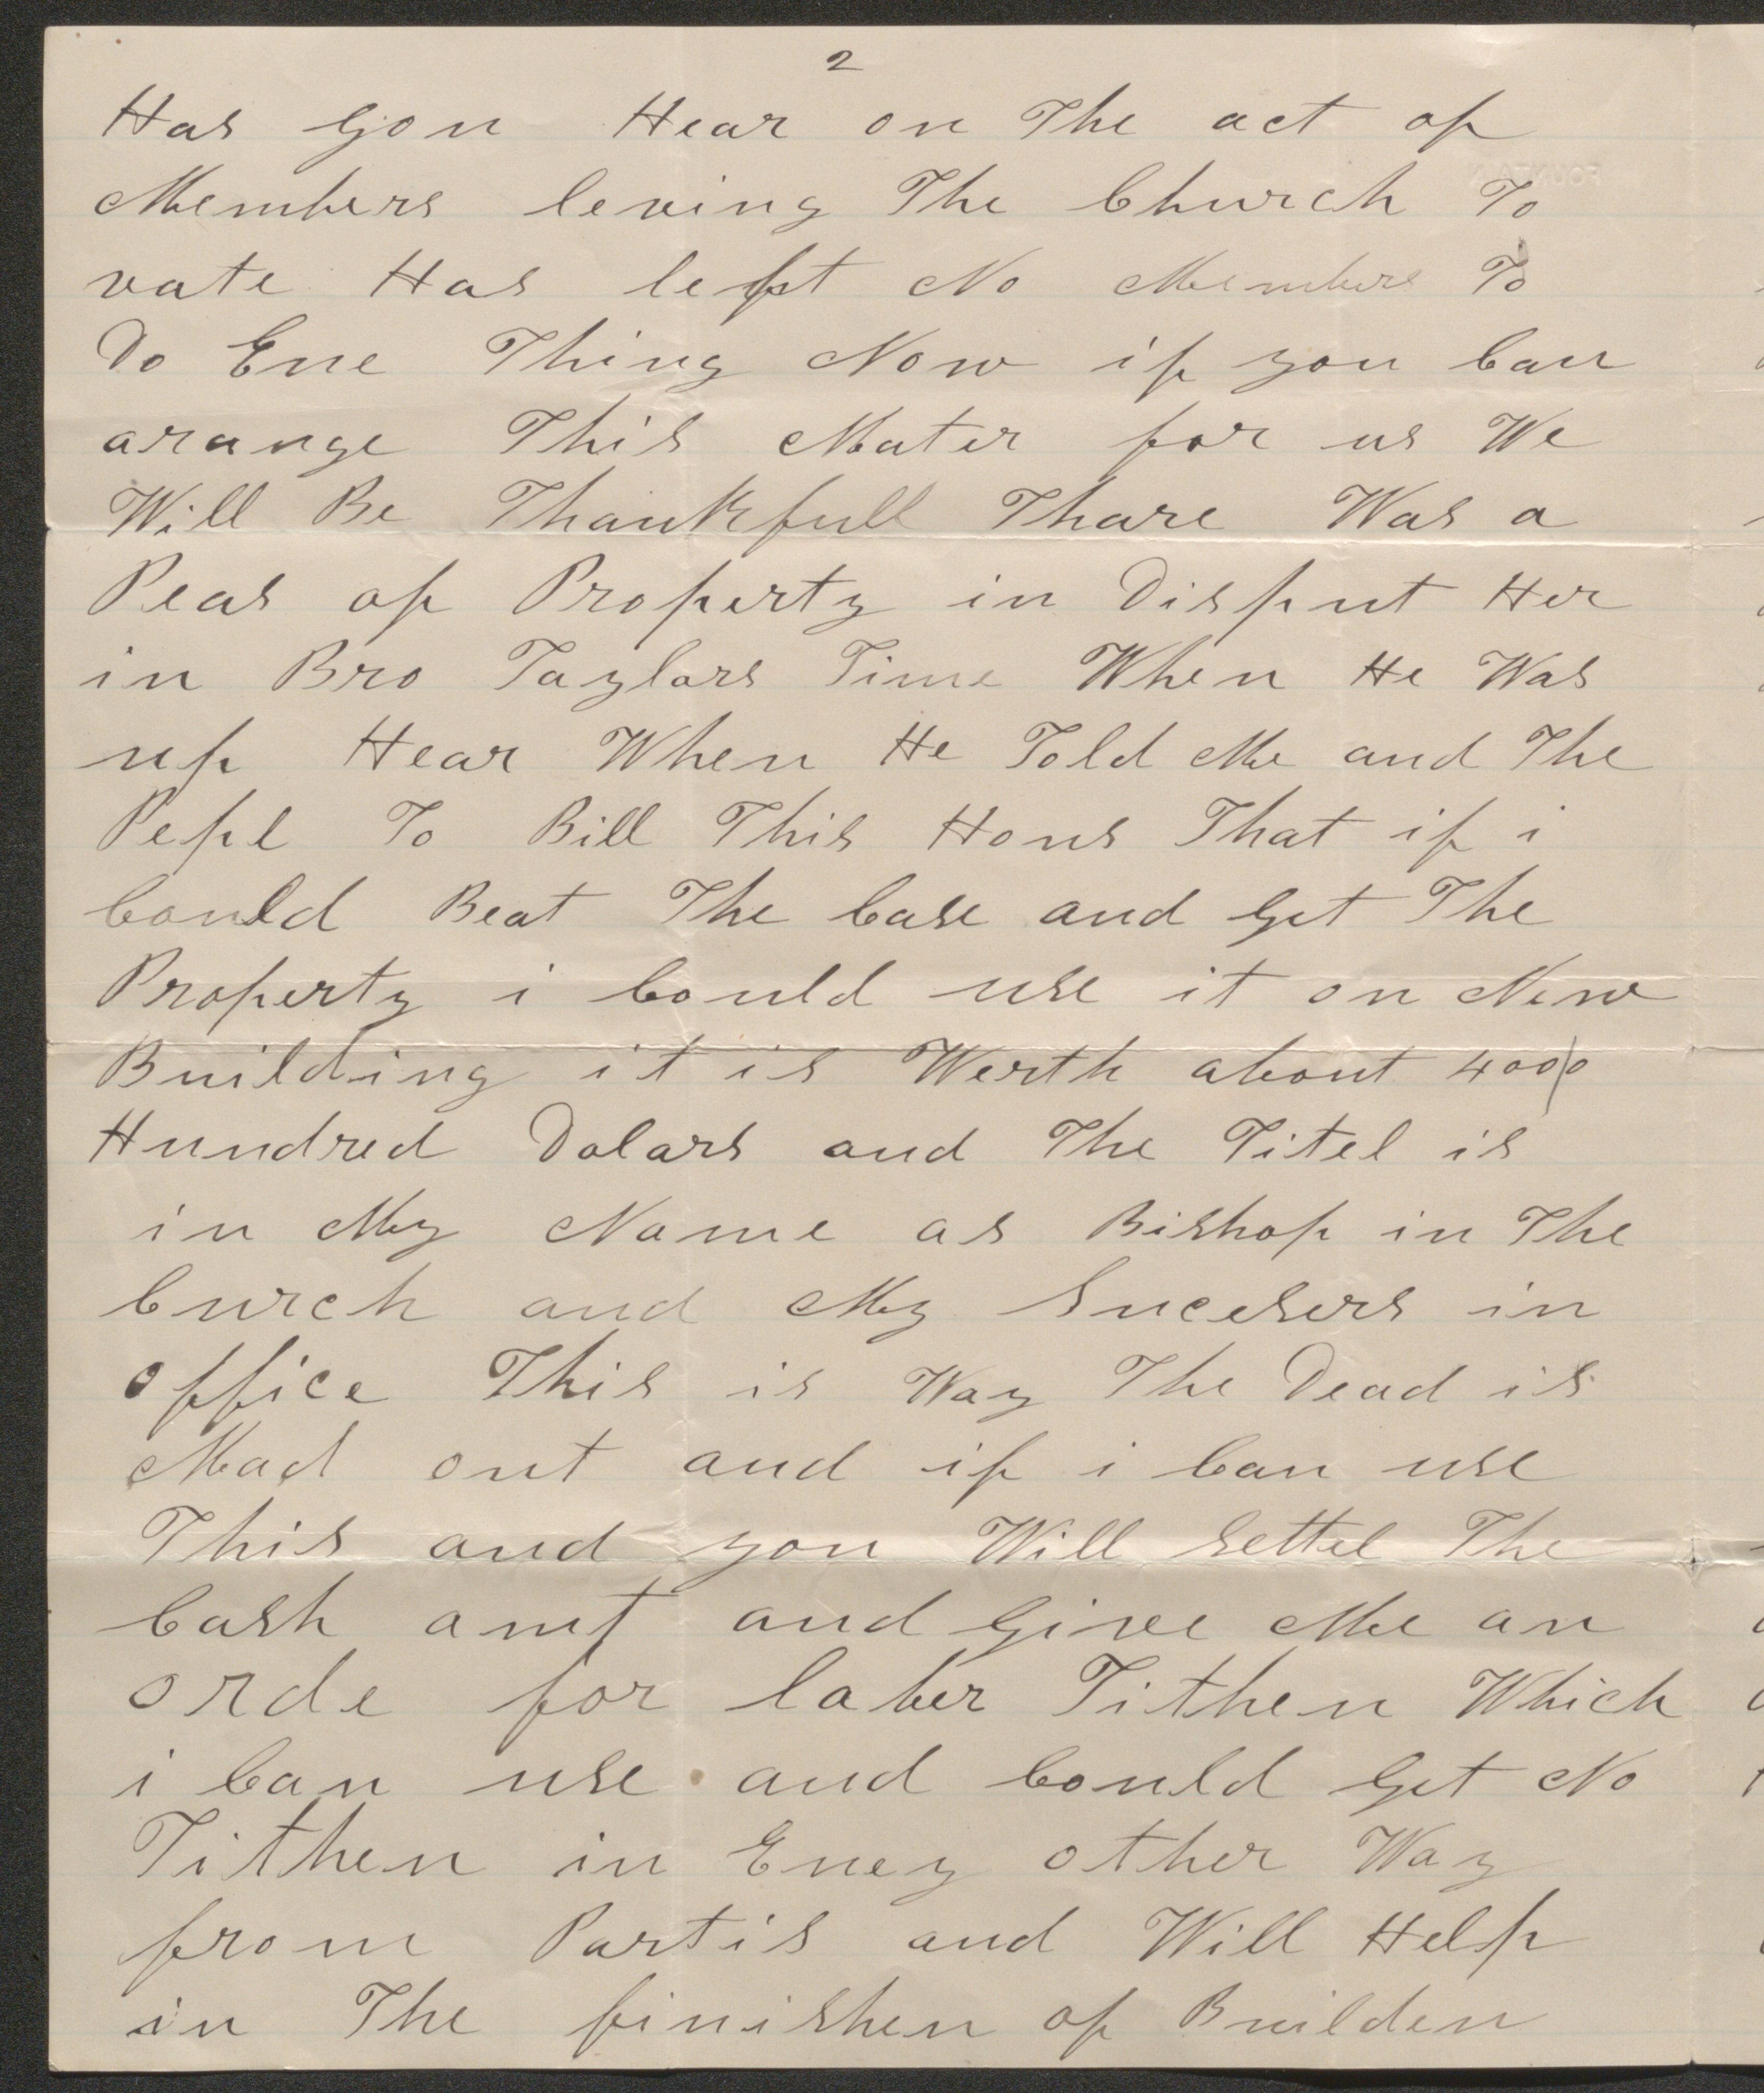 2
Has gon Hear on The act of
Members leving The Church To
vate Has left No Members To
Do Ene Thing Now if you Can
arange This Mater for us We
Will Be Thankfull Thare Was a
Peas of Property in Disput Her
in Bro Taylors Time When He Was
up Hear When He Told Me and The
Pepl To Bill This Hous That if i
Could Beat The Case and get The
Property i Could use it on New
Building it is Werth about 400|0
Hundred Dolars and The Titel is
in My Name as Bishop in The
Curch and My Sucesers in
office This is Way The Dead is
Mad out and if i Can use
This and you Will settel The
Cash amt and Give Me an
orde for laber Tithen Which
i Can use and Could get No
Tithen in Eney other Way
from Partis and Will Help
in The finishen of Builden